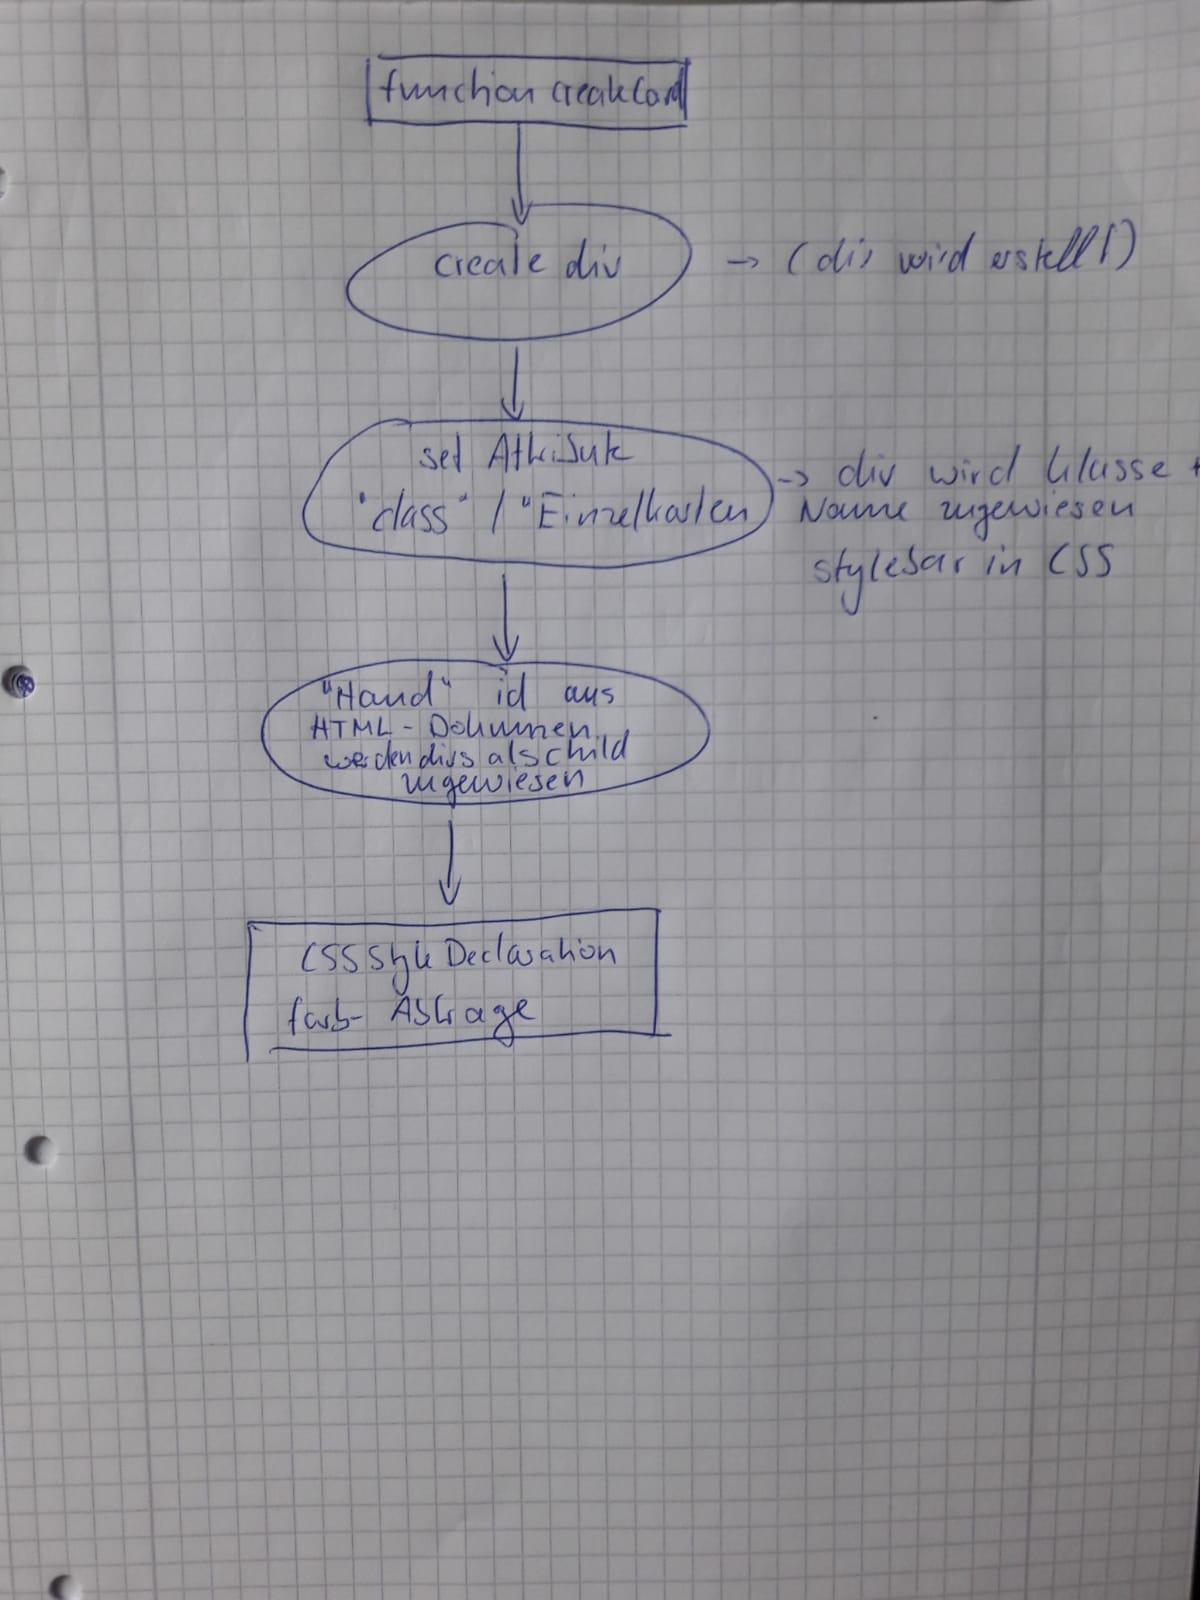 function createCard
create div → (div wird erstellt)
set Attribute → div wird Klasse +
"class" / "Einzelkarten Name zugewiesen
stylebar in CSS
"Hand" id aus
HTML - Dokumen
werden divs als child
zugewiesen
CSSStyleDeclaration
farb- Abfrage